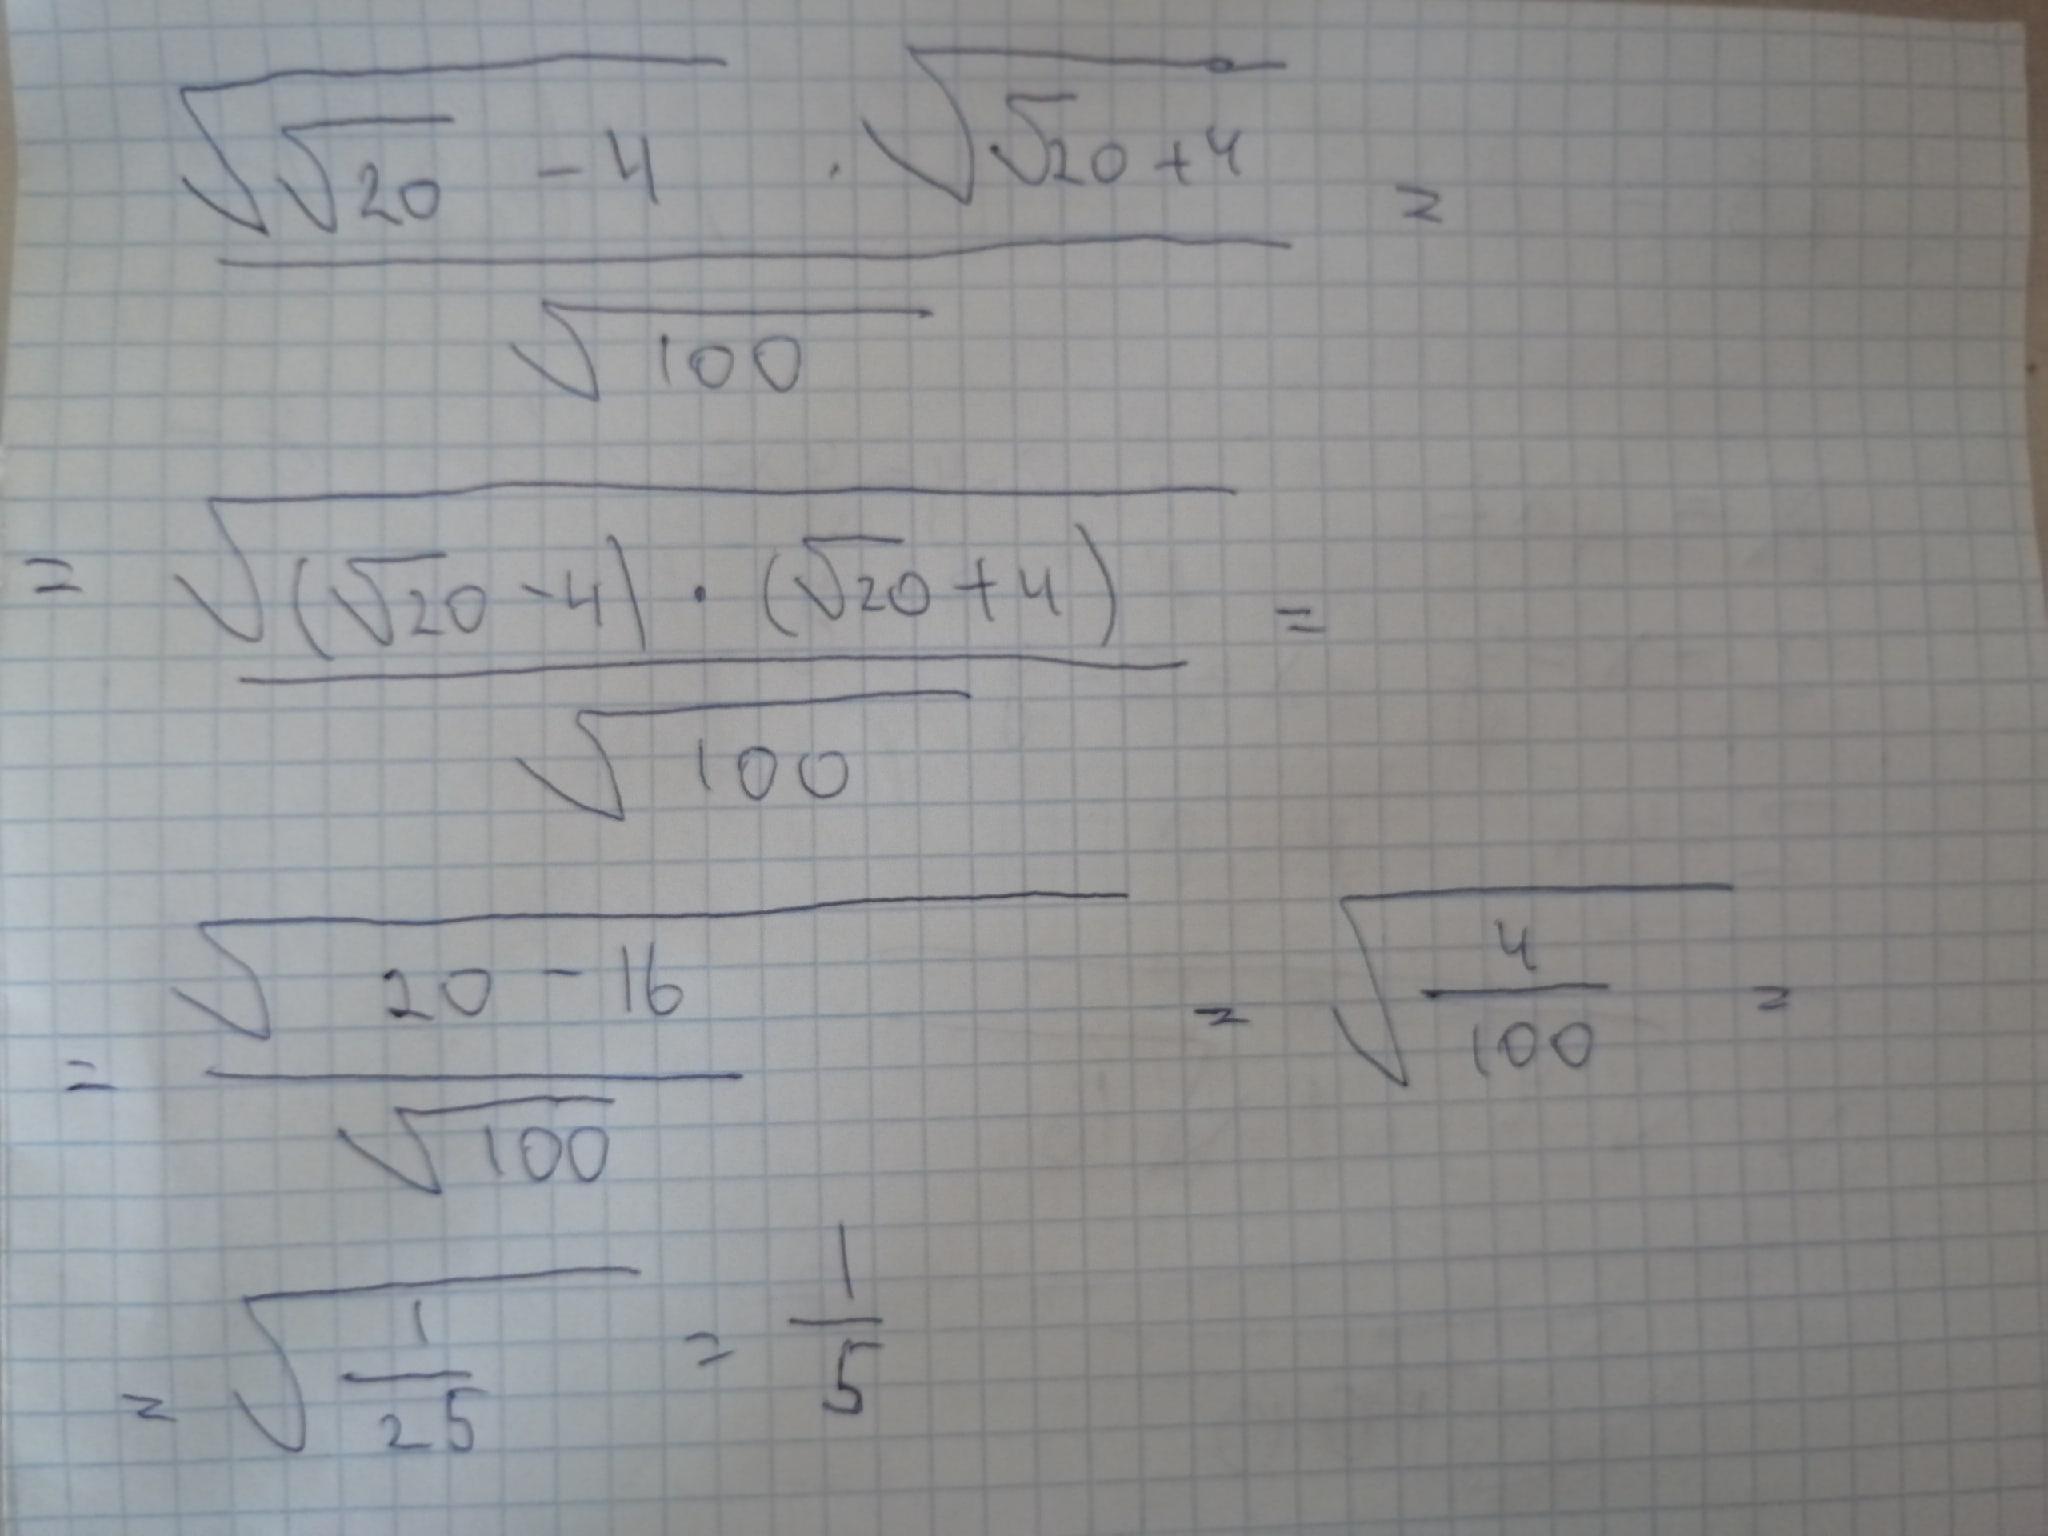 √(√20 - 4) · √(√20 + 4) / √100 =
= √((√20 - 4) · (√20 + 4)) / √100 =
= √(20 - 16) / √100 = √(4/100) =
= √(1/25) = 1/5